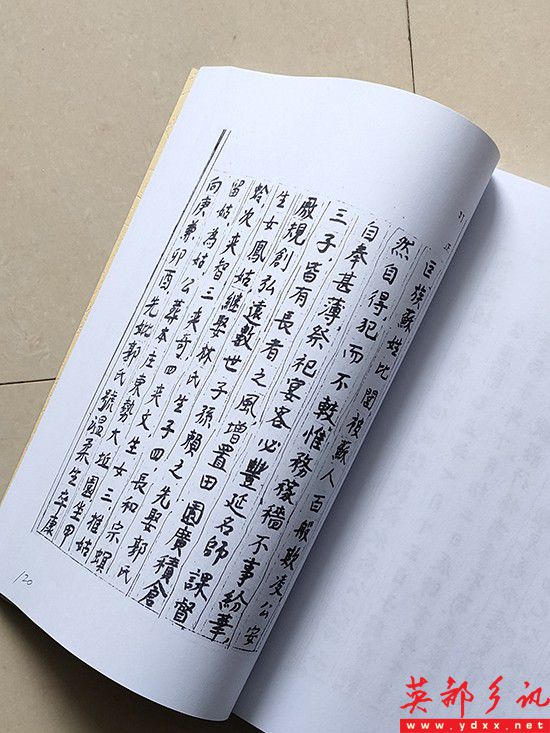 巨族蘇姓比閭被蘇人百般欺凌公安
然自得犯而不較惟務稼穡不事紛華,
自奉甚薄,祭祀宴客必豐延名師課督
三子,皆有長者之風,增置田園廣積倉
廒規創弘遠數世子孫賴之先娶郭氏
生女鳳姑繼娶林氏生子四,長和宗
次爽智三爽奇四爽文生女三推姑
留姑,為姑公葬本主東勢大坵園坐甲
向庚兼卯酉先妣郭氏號溫柔生卒庚
120
英都乡讯
www.ydxx.net